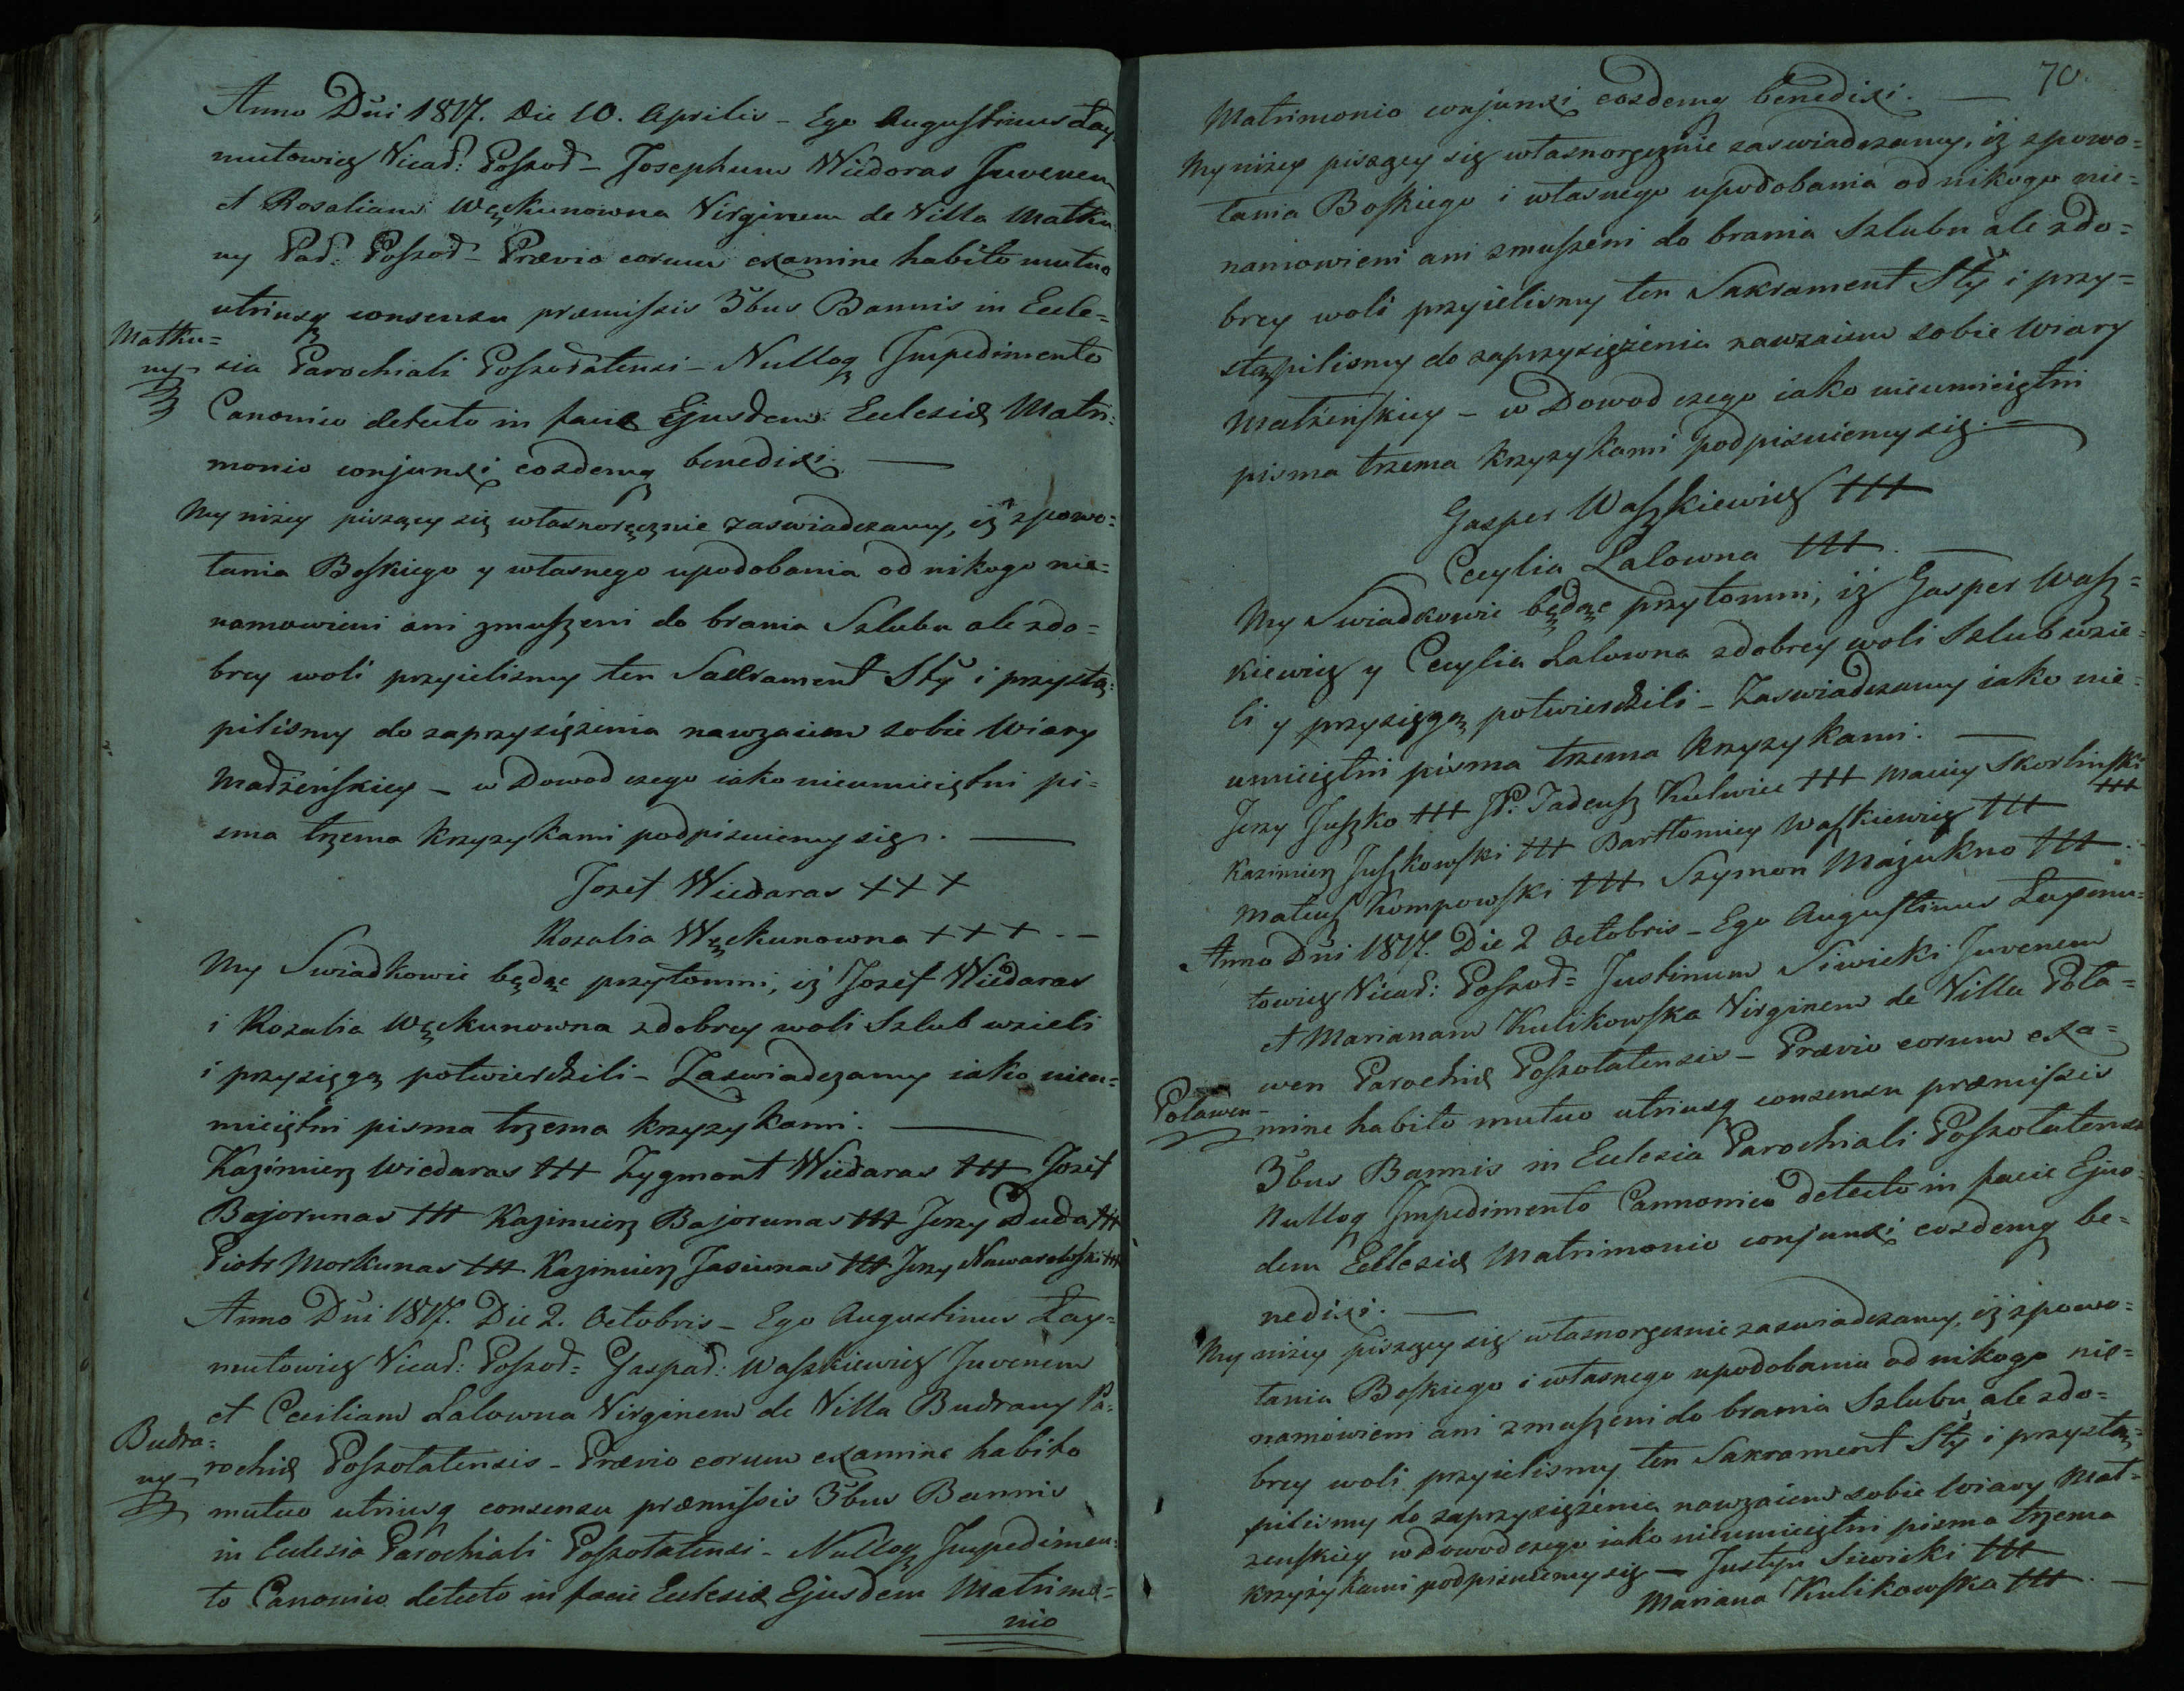 Anno Dni 1817. Die 10. Aprilis – Ego Augustinus Łay
mutowicz Vicad: Poszod – Josephum Wiedoras Juvenem
et Rosaliam Węckunowna Virginem de Villa Matku
ny Pad: Poszod – Prævio eorum examine habito mutuo
utriusq consensu præmissis 3bus Bannis in Eccle=
Matku=
ny
sia Parochiali Poszodatensi – Nulloq Impedimento
Canonico detecto in facie Ejusdem Eclesiæ Matri=
monio conjunxi eosdemq benedixi. —
My niżey piszący się własnoręcznie zaswiadczamy, iż zpowo=
łania Boskiego y własnego upodobania od nikogo nie=
namowieni ani zmuszeni do brania Szlubu ale zdo=
brey woli przyielismy ten Sakrament Sty i przystą=
pilismy do zaprzysiężenia nawzaiem sobie Wiary
Madżeńskiey – w Dowod czego iako nieumieiętni pi=
sma trzema krzyzykami podpisuiemy się. —
Jozef Wiedaras +++
Rozalia Węckunowna +++ . –
My Swiadkowie będąc przytomni, iż Jozef Wiedaras
i Rozalia Węckunowna zdobrey woli Szlub wzieli
i przysięgą potwierdzili – Zaswiadczamy iako nieu=
mieiętni pisma trzema krzyzykami. —
Kazimierz Wiedaras +++ Zygmont Wiedaras +++ Jozef
Bajorunas +++ Kazimierz Bajorunas +++ Jerzy Duda +++
Piotr Morkunas +++ Kazimierz Jasiunas +++ Jerzy +++
Anno Dni 1817. Die 2. Octobris – Ego Augustinus Łay=
mutowicz Vicad: Poszod: Gaspad: Waszkiewicz Juvenem
et Ceciliam Lalowna Virginem de Villa Budrany Pa=
Budra=
ny
rochiæ Poszolatensis – Prævio eorum examine habito
mutuo utriusq consensu præmissis 3bus Bannis
in Eclesia Parochiali Poszolatensi – Nulloq Impedimen=
to Canonico detecto in facie Eclesiæ Ejusdem Matrimo=
nio
70.
Matrimonio conjunxi eosdemq benedixi. —
My niżey piszący się własnoręcznie zaswiadczamy, iż zpowo=
łania Boskiego i własnego upodobania od nikogo nie=
namowieni ani zmuszeni do brania Szlubu ale zdo=
brey woli przyielismy ten Sakrament Sty i przy=
stąpilismy do zaprzysiężenia nawzaiem sobie Wiary
Małżeńskiey – w Dowod czego iako nieumieiętni
pisma trzema krzyzykami podpisuiemy się. –
Gasper Waszkiewicz +++
Cecylia Lalowna +++ . —
My Swiadkowie będąc przytomni, iż Gasper Wasz=
kiewicz y Cecylia Lalowna zdobrey woli Szlub wzie=
li y przysięgą potwierdzili – Zaswiadczamy iako nie=
umieiętni pisma trzema krzyzykami. —
Jerzy Juszko +++ JP: Tadeusz Kulwiec +++ Maciey Skorlinski
+++
Kazimierz Juszkowski +++ Bartłomiey Waszkiewicz +++
Mateusz Kompowski +++ Szymon Mażukno +++ .
Anno Dni 1817. Die 2 Octobris – Ego Augustinus Łaymu=
towicz Vicad: Poszod= Justinum Siwicki Juvenem
et Marianam Kulikowska Virginem de Villa Pola=
wen Parochiæ Poszolatensis – Prævio eorum exa=
Polawen
mine habito mutuo utriusq consensu præmissis
3bus Bannis in Eclesia Parochiali Poszolatensi
Nulloq Impedimento Cannonico detecto in facie Ejus=
dem Ecclesiæ Matrimonio conjunxi eosdemq be=
nedixi. —
My niżey piszący się własnoręcznie zaswiadczamy, iż zpowo=
łania Boskiego i własnego upodobania od nikogo nie=
namowieni ani zmuszeni do brania Szlubu ale zdo=
brey woli przyielismy ten Sakrament Sty i przystą=
pilismy do zaprzysiężenia nawzaiem sobie Wiary Mał=
zenskiey w Dowod czego iako nieumieiętni pisma trzema
krzyżykami podpisuiemy się – Justyn Siwicki +++
Mariana Kulikowska +++ . —